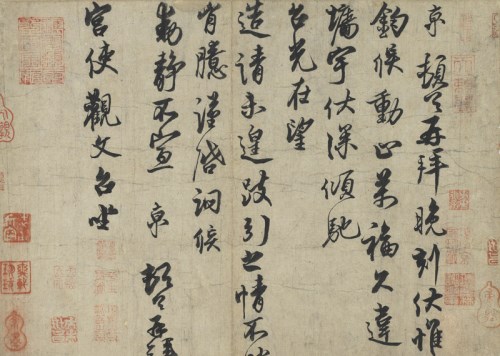 京 頓首再拜晚刻伏惟
鈞候動止萬福久違
墻宇伏深傾馳
台光在望
造請未遑跂引之情不
胸臆謹啓詢候
動靜不宣 京 頓首再拜
宮使觀文台坐